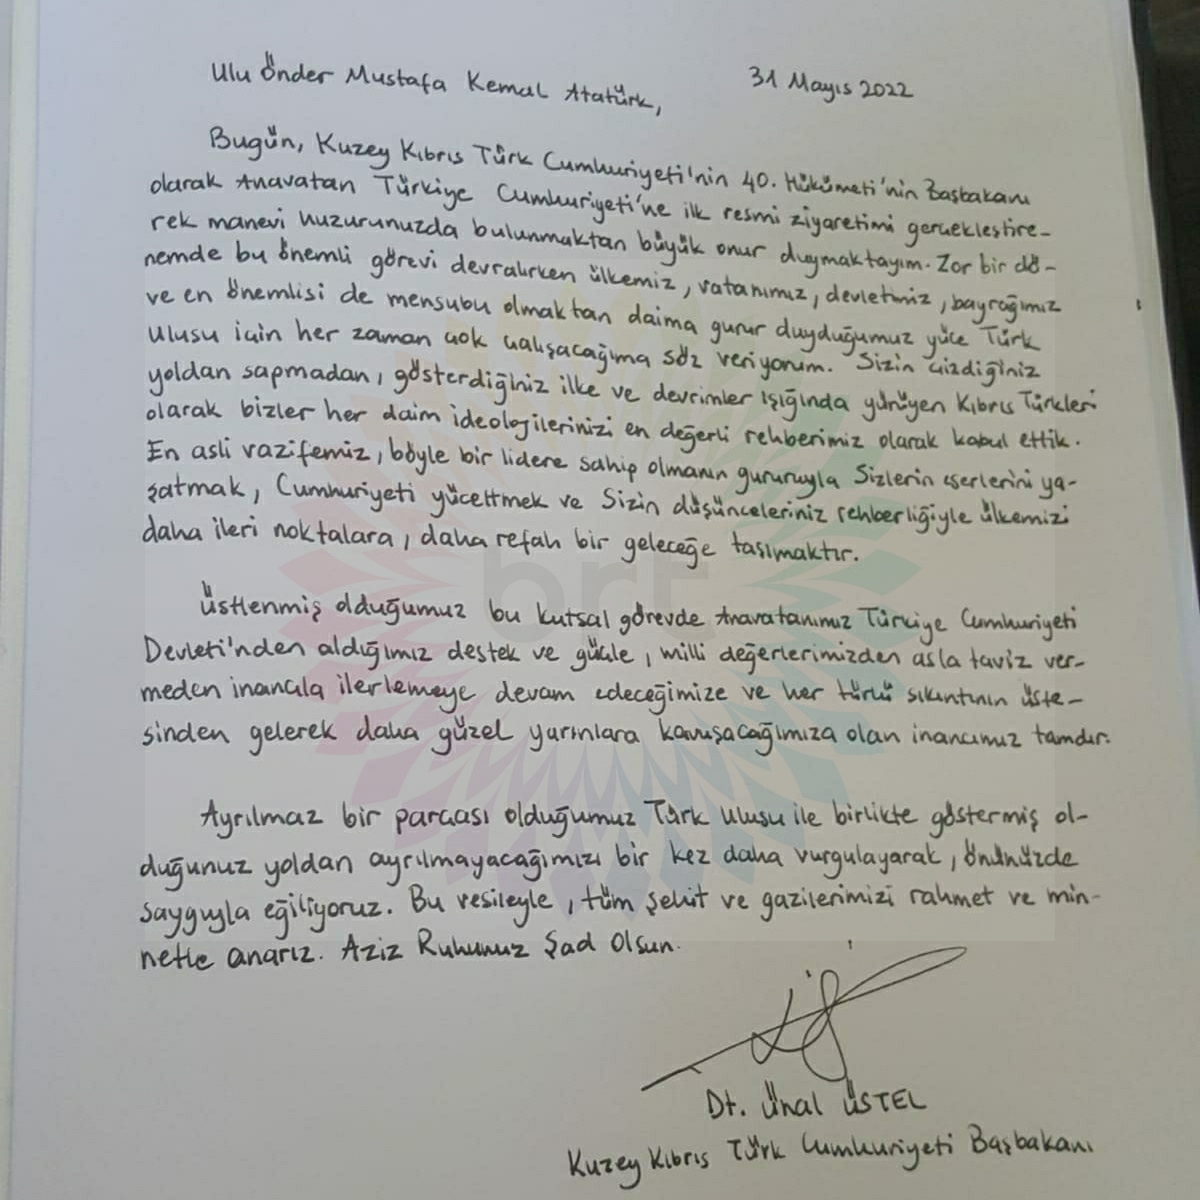 Ulu Önder Mustafa Kemal Atatürk, 31 Mayıs 2022
Bugün, Kuzey Kıbrıs Türk Cumhuriyeti'nin 40. Hükümeti'nin Başbakanı
olarak Anavatan Türkiye Cumhuriyeti'ne ilk resmi ziyaretimi gerçekleştire-
rek manevi huzurunuzda bulunmaktan büyük onur duymaktayım. Zor bir dö-
nemde bu önemli görevi devralırken ülkemiz, vatanımız, devletimiz, bayrağımız
ve en önemlisi de mensubu olmaktan daima gurur duyduğumuz yüce Türk
Ulusu için her zaman çok çalışacağıma söz veriyorum. Sizin çizdiğiniz
yoldan sapmadan, gösterdiğiniz ilke ve devrimler ışığında yürüyen Kıbrıs Türkleri
olarak bizler her daim ideolojilerinizi en değerli rehberimiz olarak kabul ettik.
En asli vazifemiz, böyle bir lidere sahip olmanın gururuyla Sizlerin eserlerini ya-
şatmak, Cumhuriyeti yüceltmek ve Sizin düşünceleriniz rehberliğiyle ülkemizi
daha ileri noktalara, daha refah bir geleceğe taşımaktır.
brt
Üstlenmiş olduğumuz bu kutsal görevde Anavatanımız Türkiye Cumhuriyeti
Devleti'nden aldığımız destek ve güçle, milli değerlerimizden asla taviz ver-
meden inançla ilerlemeye devam edeceğimize ve her türlü sıkıntının üste-
sinden gelerek daha güzel yarınlara kavuşacağımıza olan inancımız tamdır.
Ayrılmaz bir parçası olduğumuz Türk Ulusu ile birlikte göstermiş ol-
duğunuz yoldan ayrılmayacağımızı bir kez daha vurgulayarak, önünüzde
saygıyla eğiliyoruz. Bu vesileyle, tüm şehit ve gazilerimizi rahmet ve min-
netle anarız. Aziz Ruhunuz Şad Olsun.
Dt. Ünal ÜSTEL
Kuzey Kıbrıs Türk Cumhuriyeti Başbakanı